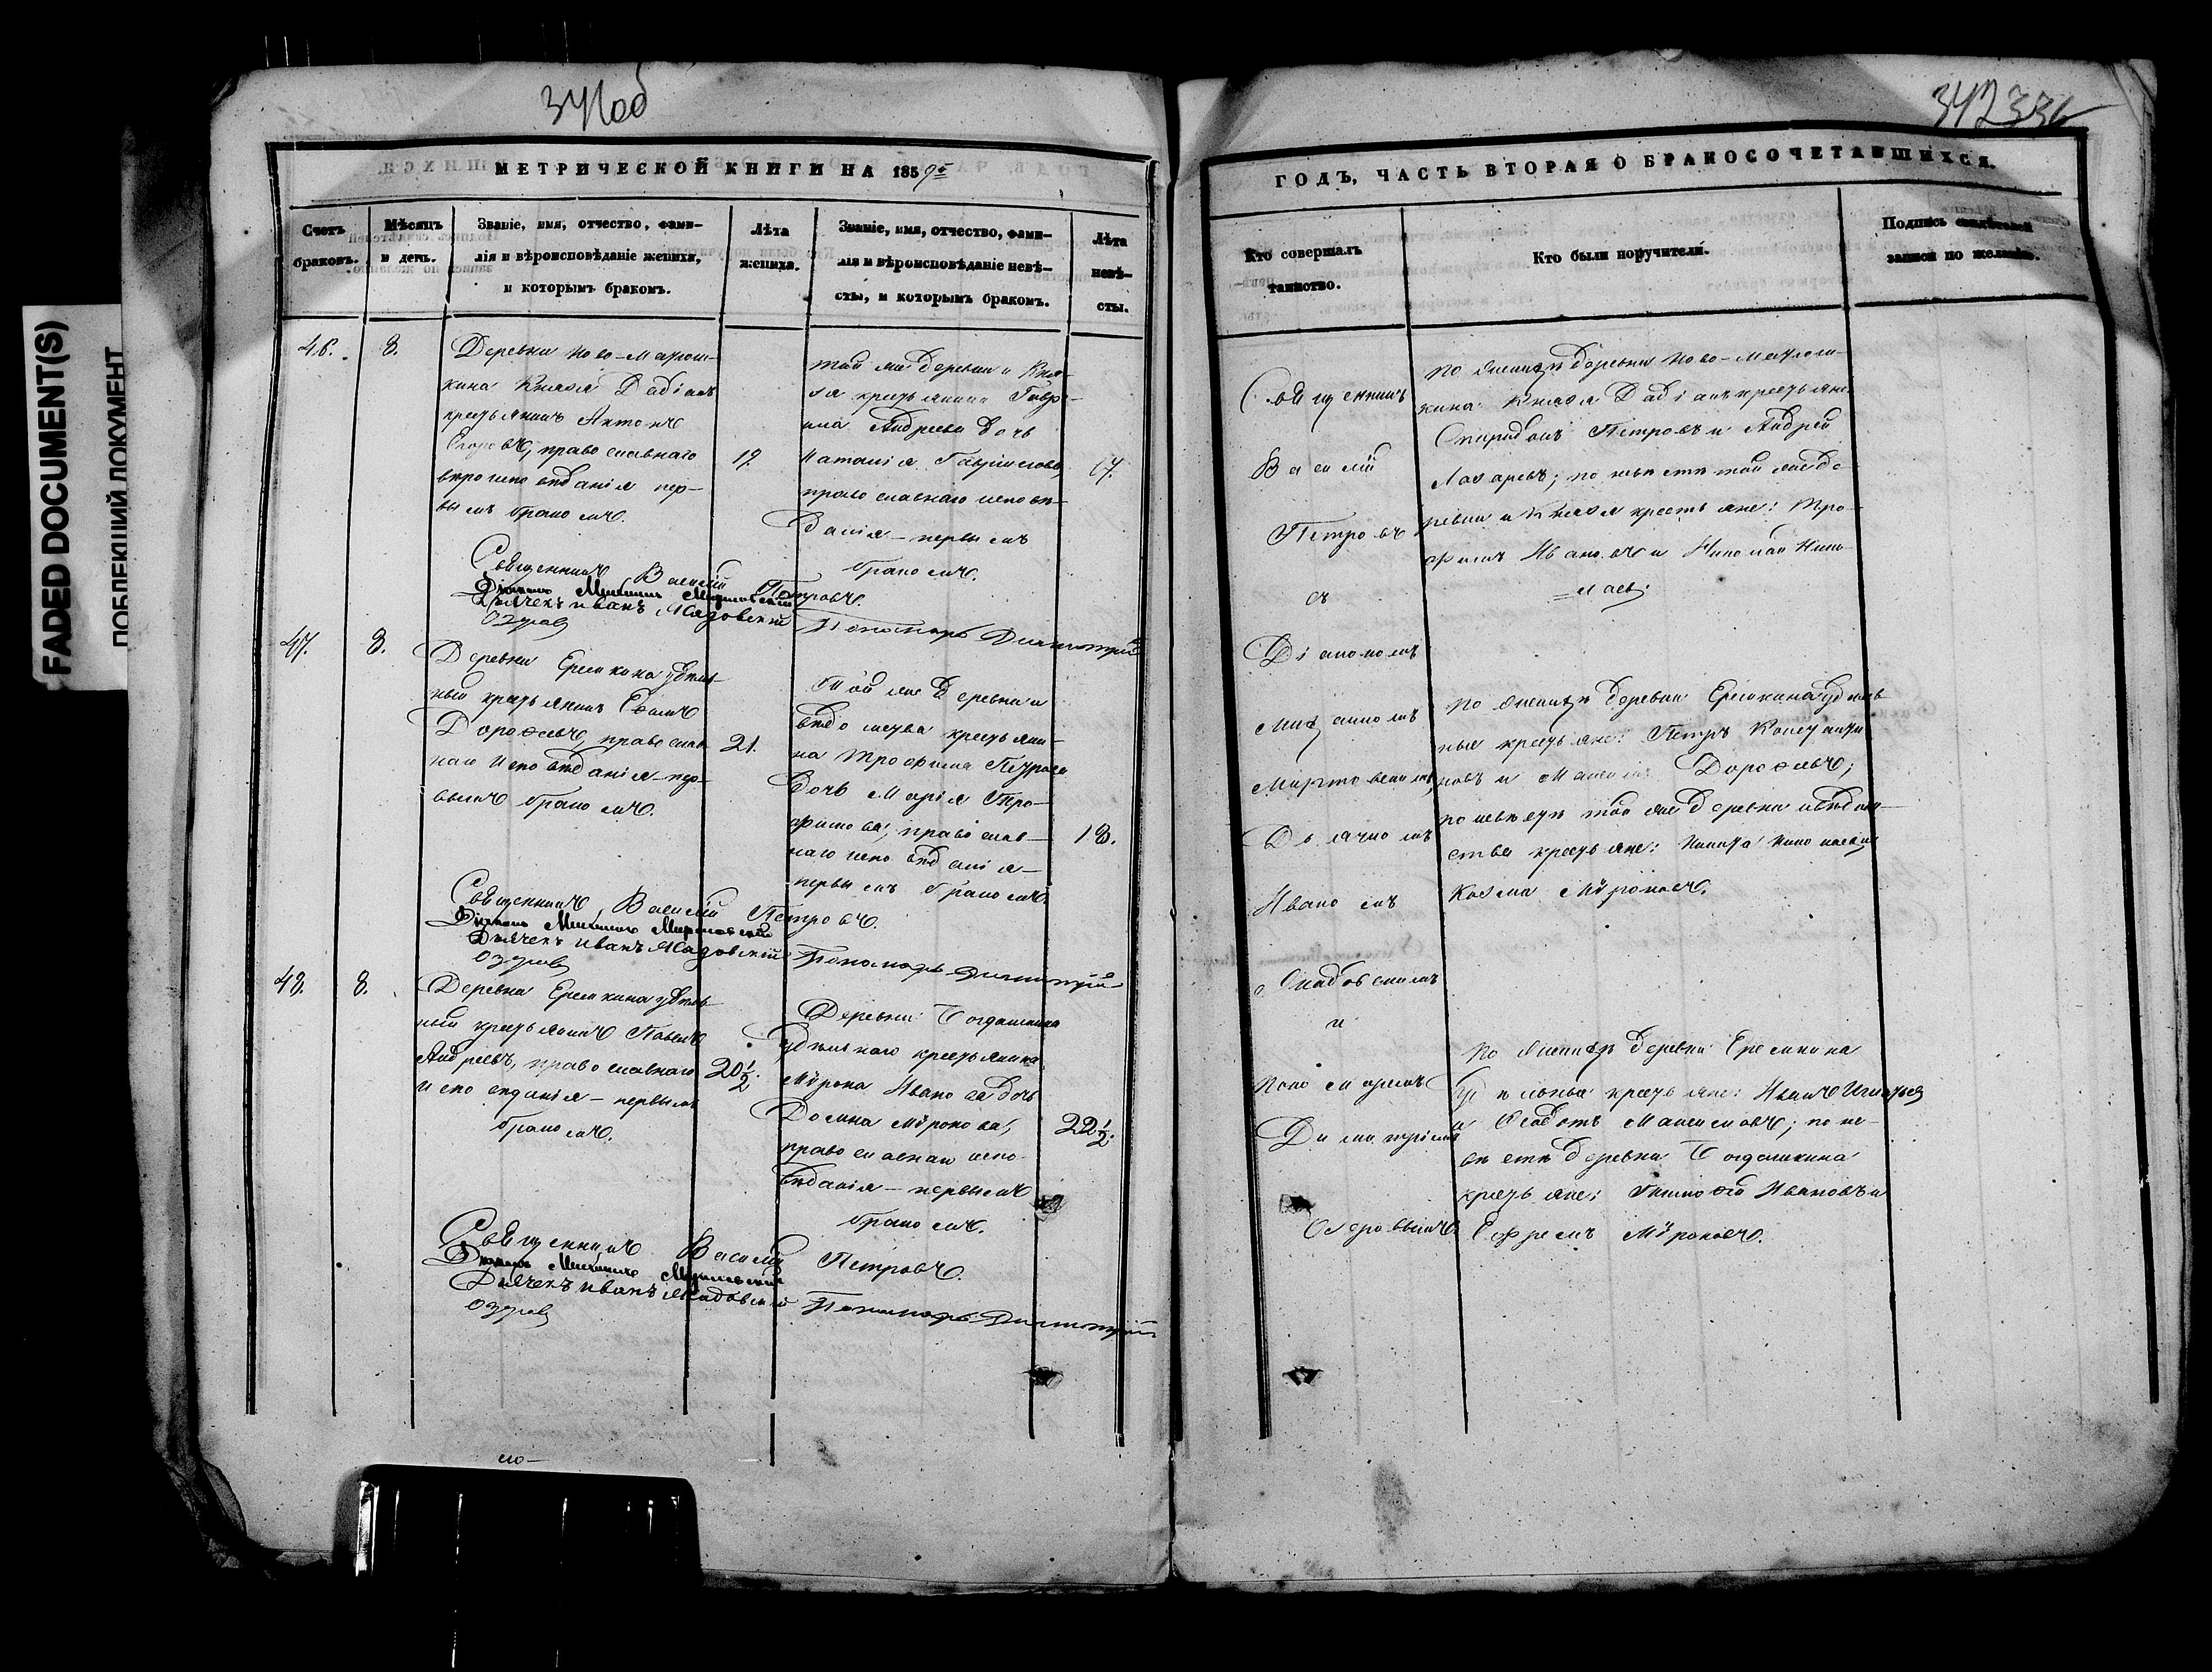 FADED DOCUMENT(S)
ПОБЛЕКШИЙ ДОКУМЕНТ
341об
МЕТРИЧЕСКОЙ КНИГИ НА 1859
Счетъ браковъ.
Мѣсяцъ и день.
Званіе, имя, отчество, фами-
лія и вѣроисповѣданіе жениха,
и которымъ бракомъ.
Лѣта жениха.
Званіе, имя, отчество, фами-
лія и вѣроисповѣданіе невѣ-
сты, и которымъ бракомъ.
Лѣта невѣ-
сты.
46.
8.
Деревни Ново-
кина Князя Дадіанъ
крестьянинъ Антонъ
Егоровъ, православнаго
вѣроисповѣданія пер-
вымъ бракомъ.
19.
той же деревни и Кня-
зя крестьянина Гаврі-
ила Андреева дочь
Наталія Гавріилова,
православнаго исповѣ-
данія – первымъ
бракомъ.
17.
Священникъ Василій Петровъ.
Діаконъ Михаилъ
Дьячекъ Иванъ
Пономарь Димитрій
Озеровъ
47.
8.
Деревни Еремкина удѣль-
ный крестьянинъ
Дорофеевъ, православ-
наго исповѣданія – пер-
вымъ бракомъ.
21.
Той же деревни и
вѣдомства крестьяни-
на Трофима Петрова
дочь Марія Тро-
фимова, православ-
наго исповѣданія –
первымъ бракомъ.
18.
Священникъ Василій Петровъ.
Діаконъ Михаилъ
Дьячекъ Иванъ
Пономарь Димитрій
Озеровъ
48.
8.
Деревни Еремкина удѣль-
ный крестьянинъ Павелъ
Андреевъ, православнаго
исповѣданія – первымъ
бракомъ.
20 1/2.
Деревни Богдашкина
удѣльнаго крестьянина
Мѵрона Иванова дочь
Домна Мѵронова,
православнаго испо-
вѣданія – первымъ
бракомъ.
22 1/2.
Священникъ Василій Петровъ.
Діаконъ Михаилъ
Дьячекъ Иванъ
Пономарь Димитрій
Озеровъ
342 336
ГОДЪ, ЧАСТЬ ВТОРАЯ О БРАКОСОЧЕТАВШИХСЯ.
Кто совершалъ
таинство.
Кто были поручители.
Подпись свидѣтелей
записи по желанію.
Священникъ
Василій
Петровъ
съ
Діакономъ
Михаиломъ
Дьячкомъ
Иваномъ
и
Пономаремъ
Димитріемъ
Озеровымъ.
По женихѣ деревни Ново-
кина Князя Дадіанъ крестьяне
Спиридонъ Петровъ и Андрей
Лазаревъ; по невѣстѣ той же де-
ревни и Князя крестьяне: Тро-
фимъ Ивановъ и Николай Нико-
лаевъ.
По женихѣ деревни Еремкина удѣль-
ные крестьяне: Петръ Константи-
новъ и Максимъ Дорофеевъ;
по невѣстѣ той же деревни и вѣдом-
ства крестьяне: Никита Николаевъ и
Козма Мѵроновъ.
По женихѣ деревни Еремкина
удѣльные крестьяне: Иванъ Игнатьевъ
и Ѳедотъ Максимовъ; по не-
вѣстѣ деревни Богдашкина
крестьяне: Тимофей Ивановъ и
Ефремъ Мѵроновъ.